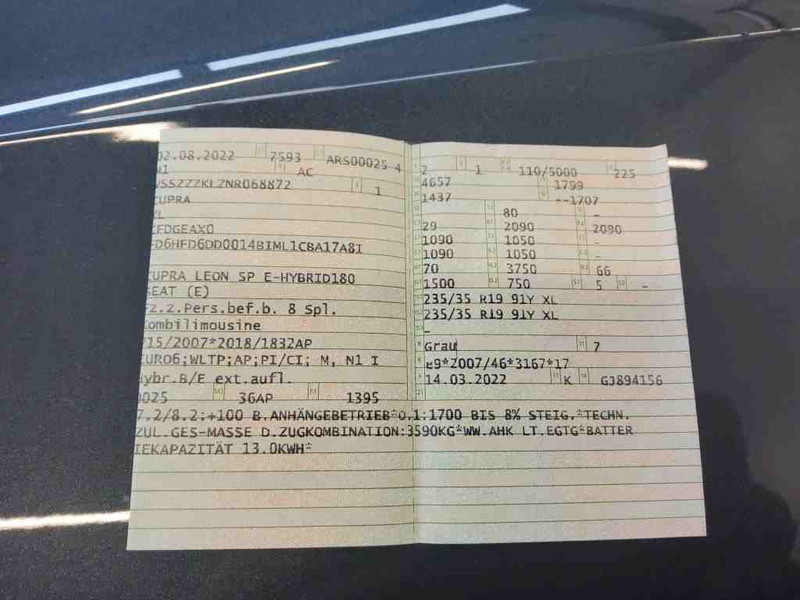 02.08.2022 7593 ARS00025 4
M1 AC
VSSZZZKLZNR068872 1
CUPRA
KL
EFDGEAX0
FD6HFD6DD0014BIML1CBA17A8I
CUPRA LEON SP E-HYBRID180
SEAT (E)
Fz.z.Pers.bef.b. 8 Spl.
Kombilimousine
715/2007*2018/1832AP
EURO6;WLTP;AP;PI/CI; M, N1 I
Hybr.B/E ext.aufl.
0025 36AP 1395
2 1 110/5000 225
4657 1799
1437 --1707
80 -
29 2090 2090
1090 1050 -
1090 1050 -
70 3750 66
1500 750 5 -
235/35 R19 91Y XL
235/35 R19 91Y XL
-
Grau 7
e9*2007/46*3167*17
14.03.2022 K GJ894156
7.2/8.2:+100 B.ANHÄNGEBETRIEB*O.1:1700 BIS 8% STEIG.*TECHN.
ZUL.GES-MASSE D.ZUGKOMBINATION:3590KG*WW.AHK LT.EGTG*BATTER
IEKAPAZITÄT 13.0KWH*